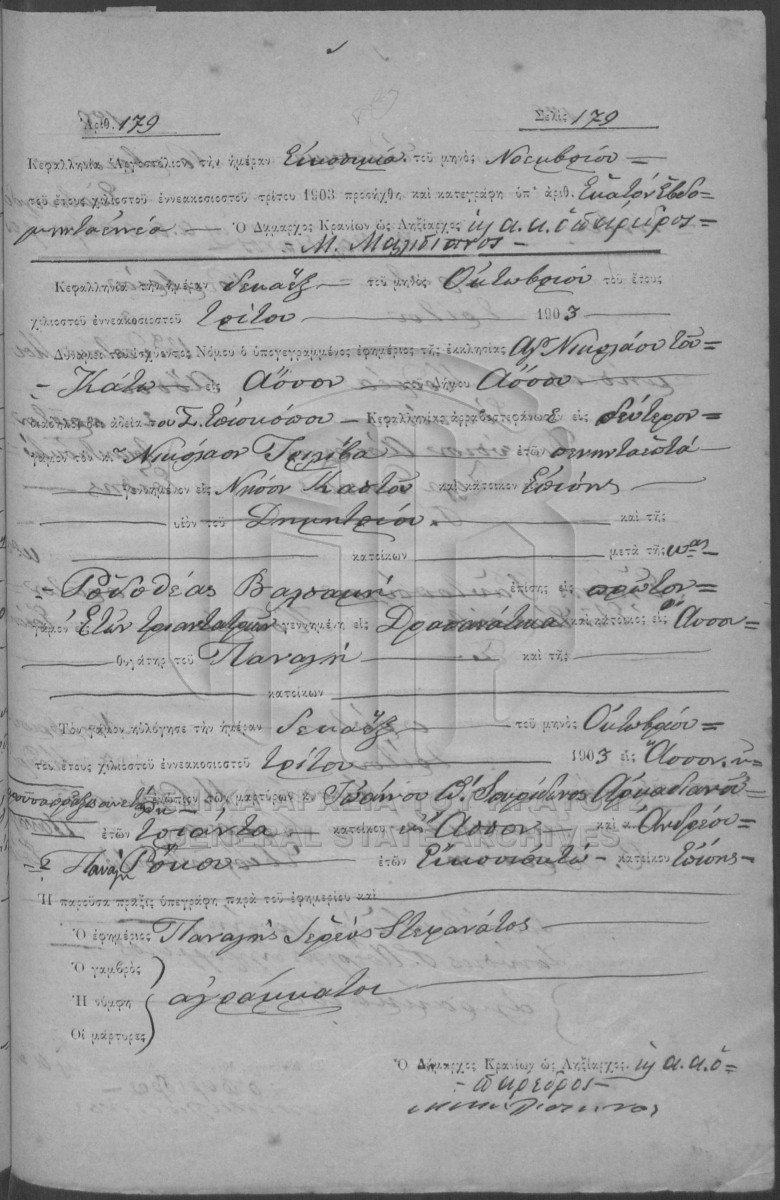 Ἀριθ. 179
Σελὶς 179
Κεφαλληνία Ἀργοστόλιον τὴν ἡμέραν τοῦ μηνὸς Νοεμβρίου
τοῦ ἔτους χιλιοστοῦ ἐννεακοσιοστοῦ τρίτου 1903 προσήχθη καὶ κατεγράφη ὑπ' ἀριθ. Ἑκατὸν Ἑβδο-
μηνταεννέα. — Ὁ Δήμαρχος Κρανίων ὡς Ληξίαρχος κ α. α. ὁ πάρεδρος
Κεφαλληνία τὴν ἡμέραν δεκαὲξ τοῦ μηνὸς Ὀκτωβρίου τοῦ ἔτους
χιλιοστοῦ ἐννεακοσιοστοῦ τρίτου 1903
Δυνάμει τοῦ ἰσχύοντος Νόμου ὁ ὑπογεγραμμένος ἐφημέριος τῆς ἐκκλησίας Ἁγ Νικολάου τοῦ
Κάτω εἰς Ἄσσον τοῦ Δήμου Ἄσσου
ἀδείᾳ τοῦ Σ. Ἐπισκόπου Κεφαλληνίας ἀρραβωστεφάνωσε εἰς δεύτερον
γάμον τὸν κ. Νικόλαον ἐτῶν πενηνταεπτά
γεννημένον εἰς Νῆσον Καστοῦ καὶ κάτοικον Ἐπίσης
υἱὸν τοῦ Δημητρίου καὶ τῆς
κατοίκων μετὰ τῆς κας
Ροδοθέας Βαλσαμῆ ἐπίσης εἰς πρῶτον
γάμον Ἐτῶν τριαντατριῶν γεννημένη εἰς Δραπανάτικα καὶ κάτοικος εἰς Ἄσσον
θυγάτηρ τοῦ Παναγῆ καὶ τῆς
κατοίκων
Τὸν γάμον ηὐλόγησε τὴν ἡμέραν δεκαὲξ τοῦ μηνὸς Ὀκτωβρίου
τοῦ ἔτους χιλιοστοῦ ἐννεακοσιοστοῦ τρίτου 1903 εἰς Ἄσσον, ἡ
ἐνώπιον τῶν μαρτύρων κ. Ἰωάννου Σπυρίδωνος
ἐτῶν τριάντα κατοίκου εἰς Ἄσσον καὶ κ. Ἀνδρέου
Παναγῆ Ρόκου ἐτῶν Εἰκοσιοκτὼ κατοίκου Ἐπίσης
Ἡ παροῦσα πρᾶξις ὑπεγράφη παρὰ τοῦ ἐφημερίου καὶ
Ὁ ἐφημέριος Παναγῆς Ἱερεὺς Στεφανάτος
Ὁ γαμβρὸς
Ἡ νύμφη ἀγράμματοι
Οἱ μάρτυρες
Ὁ Δήμαρχος Κρανίων ὡς Ληξίαρχος. κ α. α. ὁ
πάρεδρος
GENERAL STATE ARCHIVES